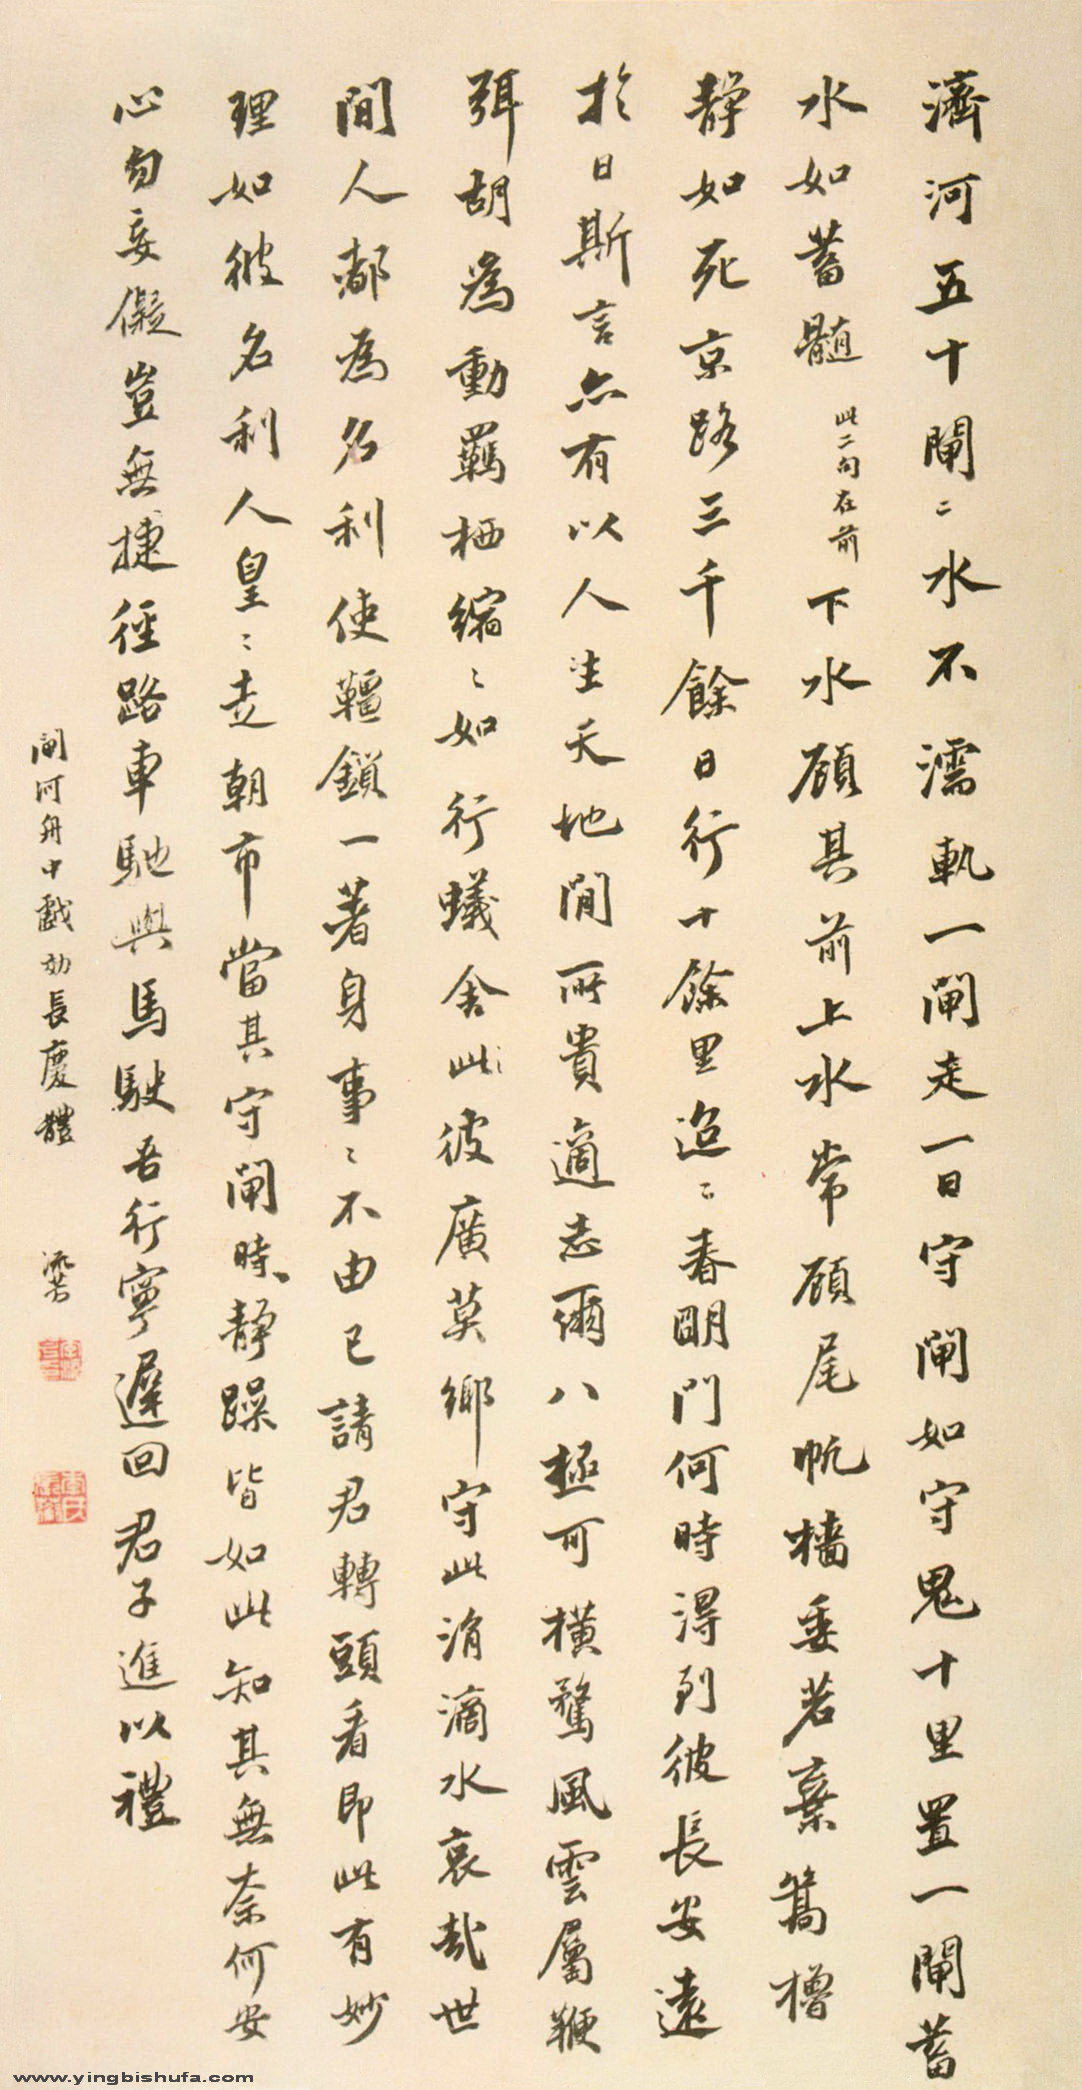 濟河五十閘〻水不濡軌一閘走一日守閘如守鬼十里置一閘蓄
水如蓄髓
此二句在前
下水顧其前上水常顧尾帆檣委若棄篙櫓
靜如死京路三千餘日行十餘里迢〻春明門何時得到彼長安遠
於日斯言亦有以人生天地間所貴適志爾八極可橫騖風雲屬鞭
弭胡為動羈栖縮〻如行蟻舍此彼廣莫鄉守此涓滴水哀哉世
間人都為名利使韁鎖一著身事〻不由己請君轉頭看即此有妙
理如彼名利人皇〻走朝市當其守閘時靜躁皆如此知其無奈何安
心勿妄儗豈無捷徑路車馳與馬駛吾行寧遲回君子進以禮
閘河舟中戲効長慶體
www.yingbishufa.com